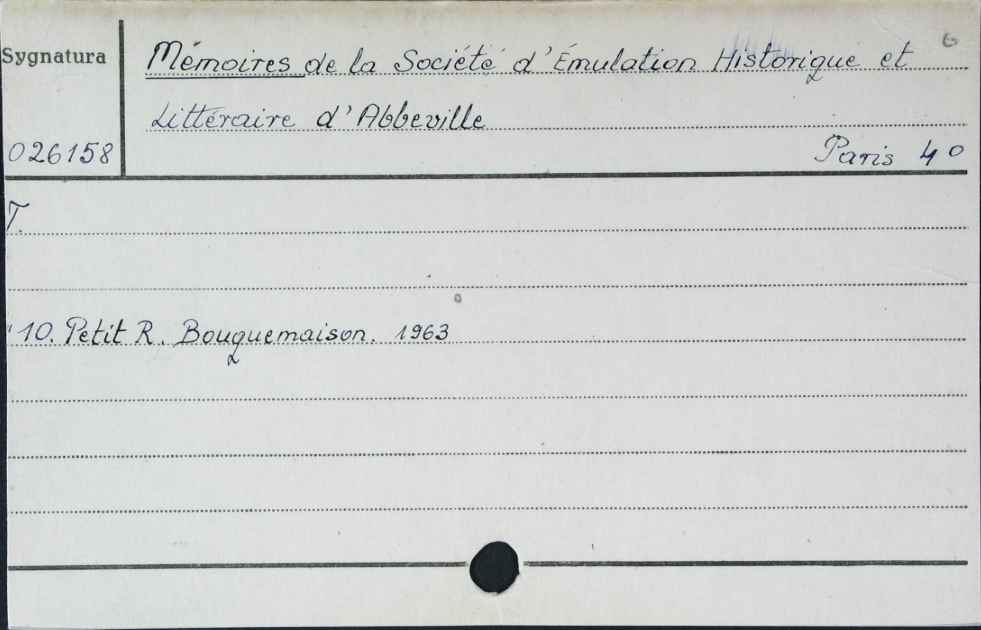 Sygnatura
Mémoires de la Société d'Émulation Historique et
Littéraire d'Abbeville
026158
Paris 4º
T.
10. Petit R. Bouquemaison. 1963